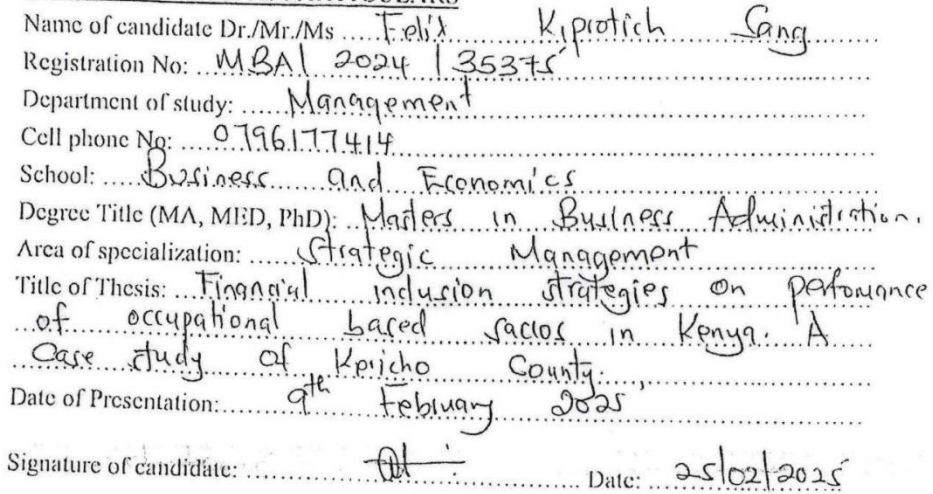 Name of candidate Dr./Mr./Ms ..... Felix Kiprotich Sang
Registration No: ..MBA| 2024 | 35375
Department of study: ..... Management
Cell phone No: ...0796177414
School: ..... Business and Economics
Degree Title (MA, MED, PhD): ..Masters in Business Administration.
Area of specialization: ..... Strategic Management
Title of Thesis: ...Financial inclusion strategies on perfomance
of occupational based saccos in Kenya. A
Case study of Kericho County.
Date of Presentation:........ 9th February 2025
Signature of candidate: ........................ Date: 25|02|2025